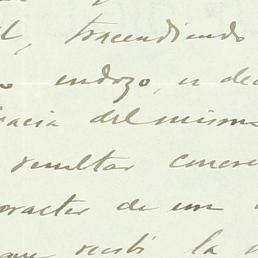 l, tracendiendo
endozo, es de
racia del mismo
resultar concre
caracter de un
que recibí la